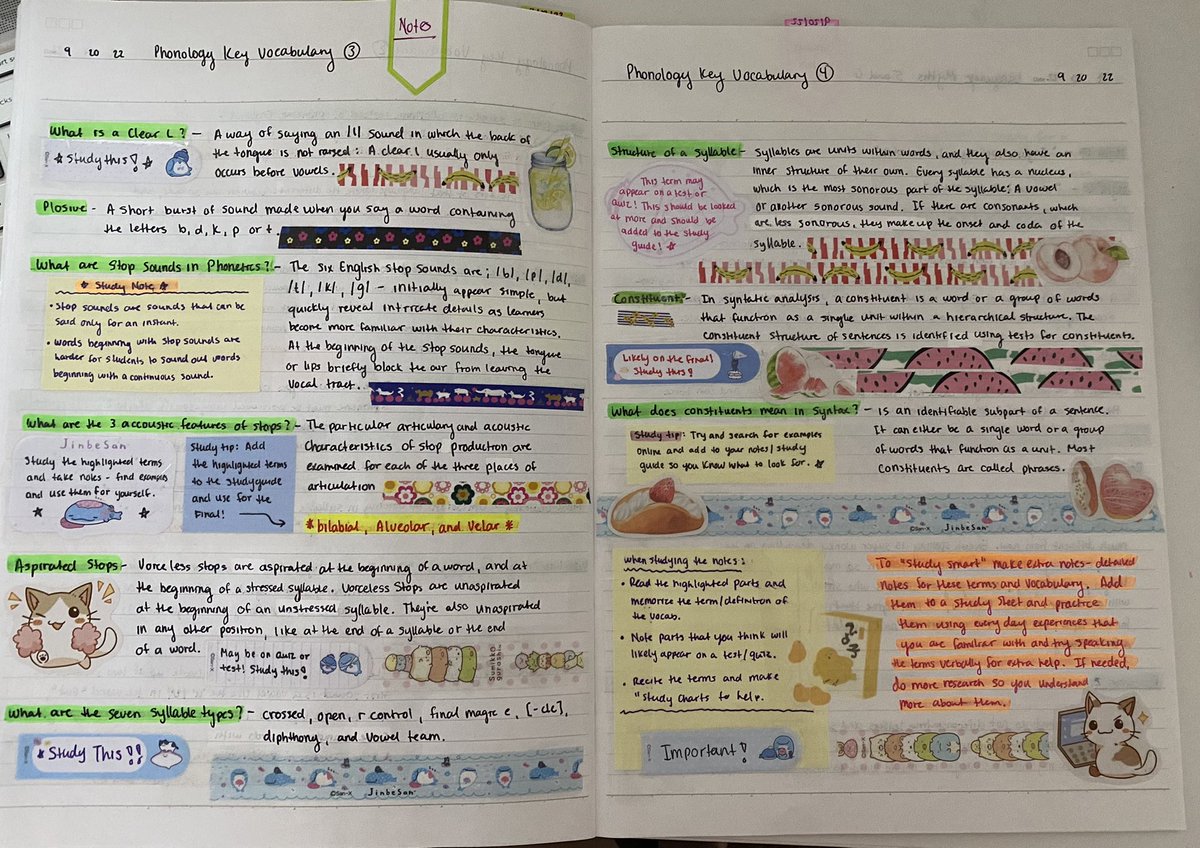 Note
9 20 22 Phonology Key Vocabulary ③
What is a Clear L? - A way of saying an /l/ sound in which the back of
the tongue is not raised: A clear l usually only
occurs before vowels.
★ Study this! ★
Plosive - A short burst of sound made when you say a word containing
the letters b, d, k, p or t.
What are Stop Sounds in Phonetics? - The six English stop sounds are; /b/, /p/, /d/,
/t/, /k/, /g/ - initially appear simple, but
quickly reveal intricate details as learners
become more familiar with their characteristics.
At the beginning of the stop sounds, the tongue
or lips briefly block the air from leaving the
vocal tract.
★ Study Note ★
• Stop sounds are sounds that can be
said only for an instant.
• Words beginning with stop sounds are
harder for students to sound out words
beginning with a continuous sound.
What are the 3 accoustic features of stops? - The particular articulary and acoustic
Characteristics of stop production are
examined for each of the three places of
articulation
JinbeSan
Study the highlighted terms
and take notes - find examples
and use them for yourself.
Study tip: Add
the highlighted terms
to the studyguide
and use for the
Final!
* bilabial, Alveolar, and Velar *
Aspirated Stops - Vorceless stops are aspirated at the beginning of a word, and at
the beginning of a stressed syllable. Vorceless Stops are unaspirated
at the beginning of an unstressed syllable. They're also unaspirated
in any other position, like at the end of a syllable or the end
of a word.
May be on quiz or
test! Study this!
Sumikko
gurashi
What are the seven syllable types? - crossed, open, r control, final magic e, [-cle],
dipthony, and vowel team.
★ Study This!!
©San-X JinbeSan
Phonology Key Vocabulary ④ 9 20 22
Structure of a Syllable - Syllables are units within words, and they also have an
inner structure of their own. Every syllable has a nucleus,
which is the most sonorous part of the syllable: A vowel
or another sonorous sound. If there are consonants, which
are less sonorous, they make up the onset and coda of the
syllable.
This term may
appear on a test or
quiz! This should be looked
at more and should be
added to the study
guide! ★
Constituent - In syntatic analysis, a constituent is a word or a group of words
that function as a single unit within a hierarchical structure. The
constituent structure of sentences is identified using tests for constituents.
Likely on the final!
Study this!
What does constituents mean in Syntax? - Is an identifiable subpart of a sentence.
It can either be a single word or a group
of words that function as a unit. Most
constituents are called phrases.
Study tip: Try and search for examples
online and add to your notes/study
guide so you know what to look for. ★
©San-X JinbeSan
When studying the notes:
• Read the highlighted parts and
memorize the term/definition of
the vocab.
• Note parts that you think will
likely appear on a test/quiz.
• Recite the terms and make
"study charts to help.
Important!
To "study smart" make extra notes - detailed
notes for these terms and vocabulary. Add
them to a study sheet and practice
them using every day experiences that
you are familiar with and try speaking
the terms verbally for extra help. If needed,
do more research so you understand
more about them.